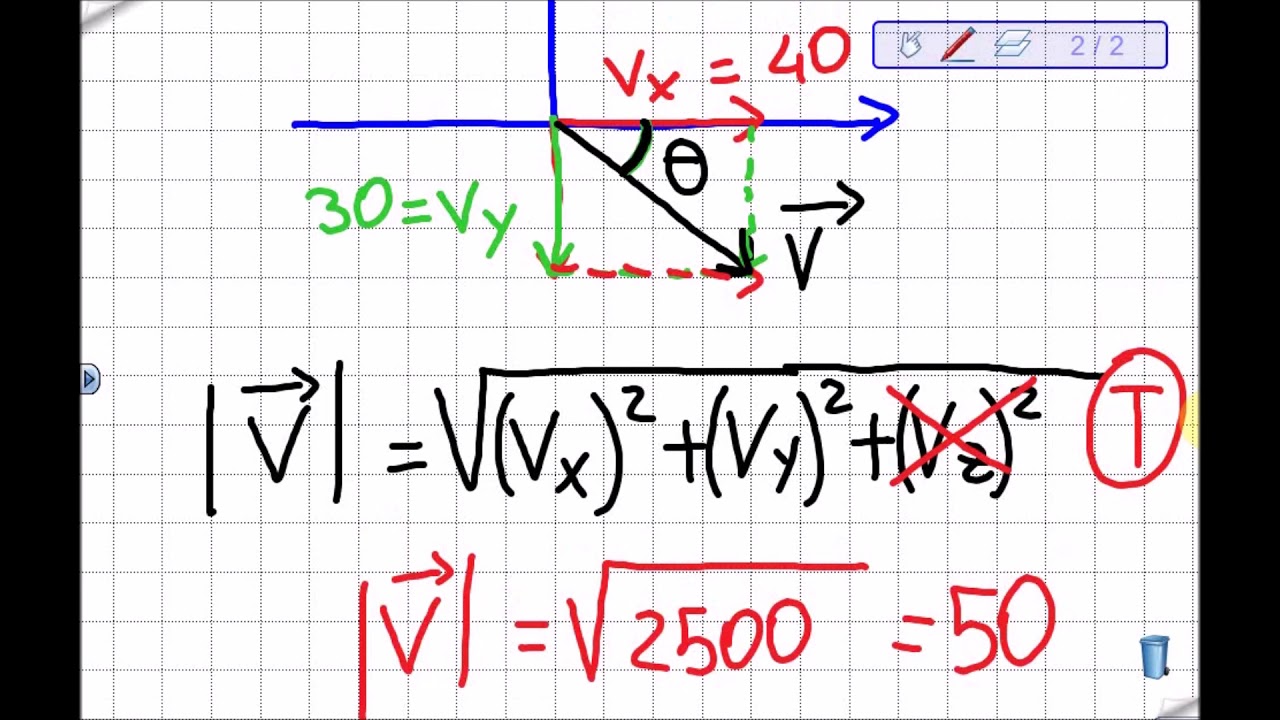 2 / 2
Vx = 40
θ
30 = Vy
V⃗
|V⃗| = √(Vx)² + (Vy)² + (Vz)² T
|V⃗| = √2500 = 50